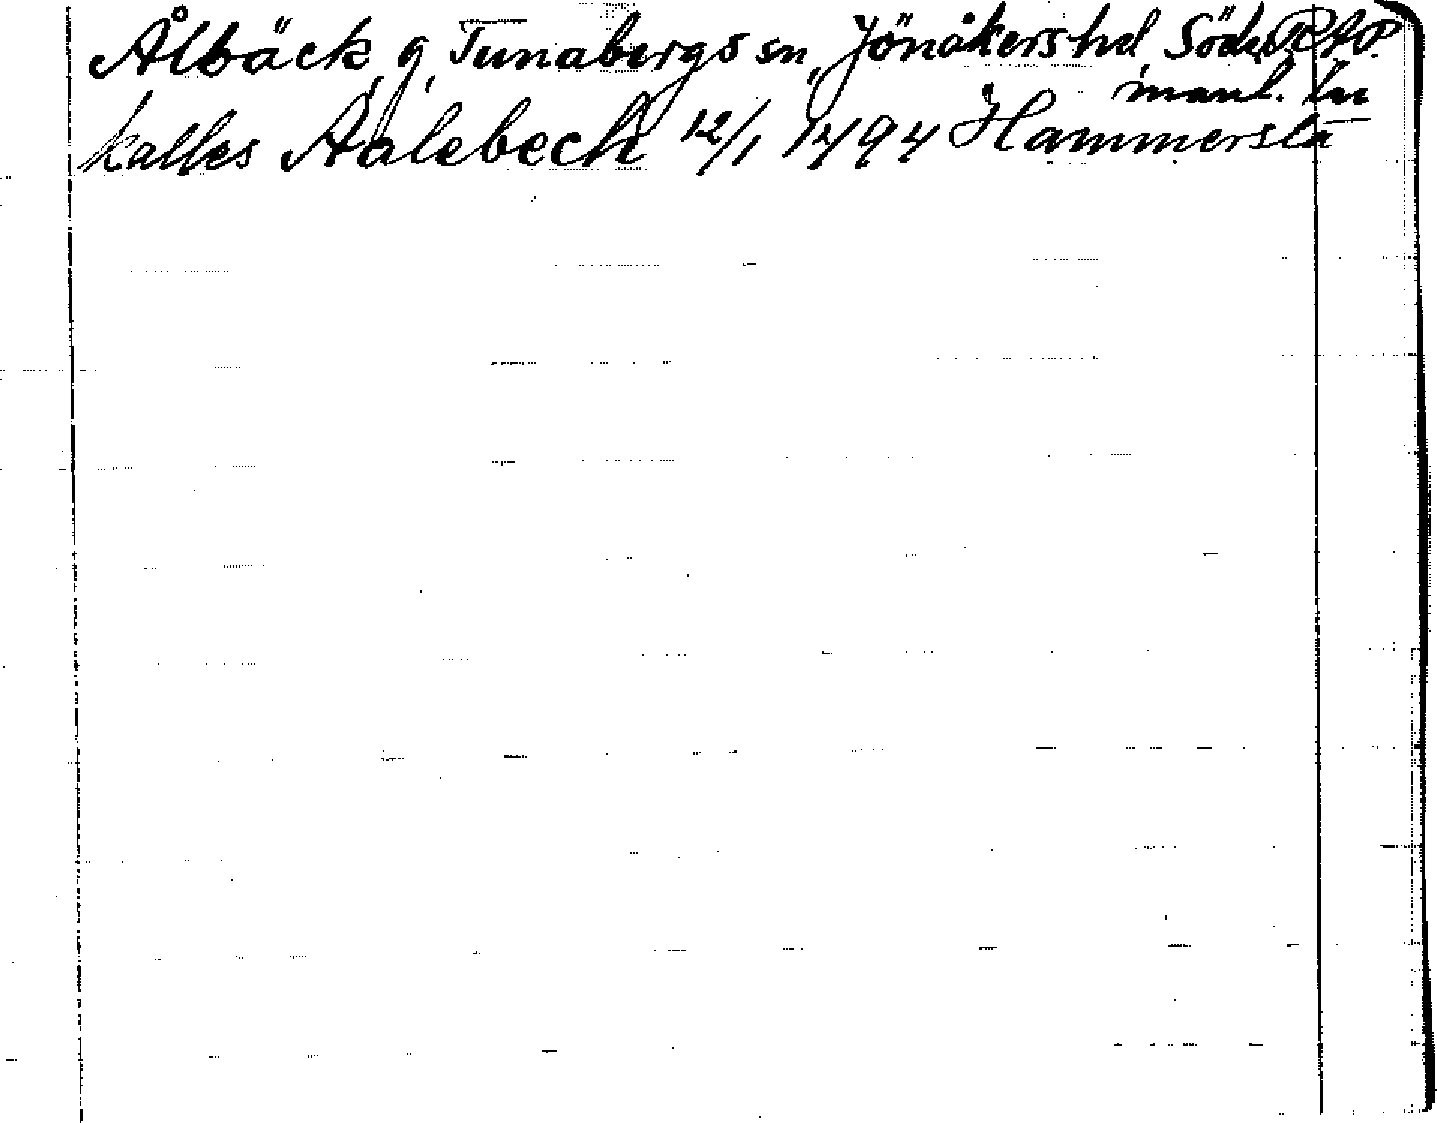 Ålbäck, g, Tunabergs sn, Jönåkers hd, Söder RAP.
manl. län
kalles Aalebech 12/1 1494 Hammersta